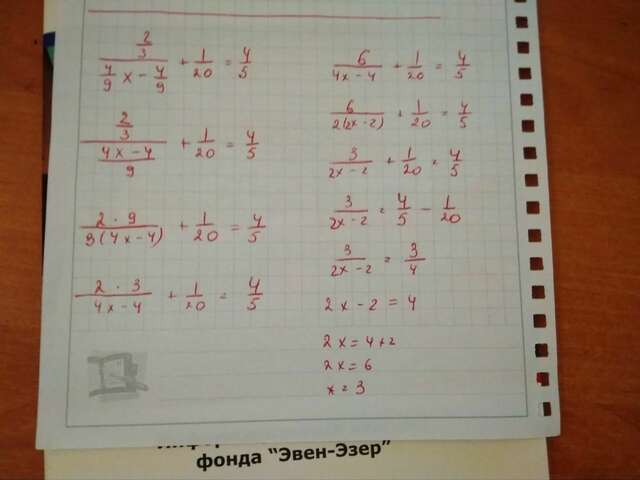 \frac{\frac{2}{3}}{\frac{4}{9}x - \frac{4}{9}} + \frac{1}{20} = \frac{4}{5}
\frac{\frac{2}{3}}{\frac{4x-4}{9}} + \frac{1}{20} = \frac{4}{5}
\frac{2 \cdot 9}{3(4x-4)} + \frac{1}{20} = \frac{4}{5}
\frac{2 \cdot 3}{4x-4} + \frac{1}{20} = \frac{4}{5}
\frac{6}{4x-4} + \frac{1}{20} = \frac{4}{5}
\frac{6}{2(2x-2)} + \frac{1}{20} = \frac{4}{5}
\frac{3}{2x-2} + \frac{1}{20} = \frac{4}{5}
\frac{3}{2x-2} = \frac{4}{5} - \frac{1}{20}
\frac{3}{2x-2} = \frac{3}{4}
2x-2 = 4
2x = 4+2
2x = 6
x = 3
фонда "Эвен-Эзер"